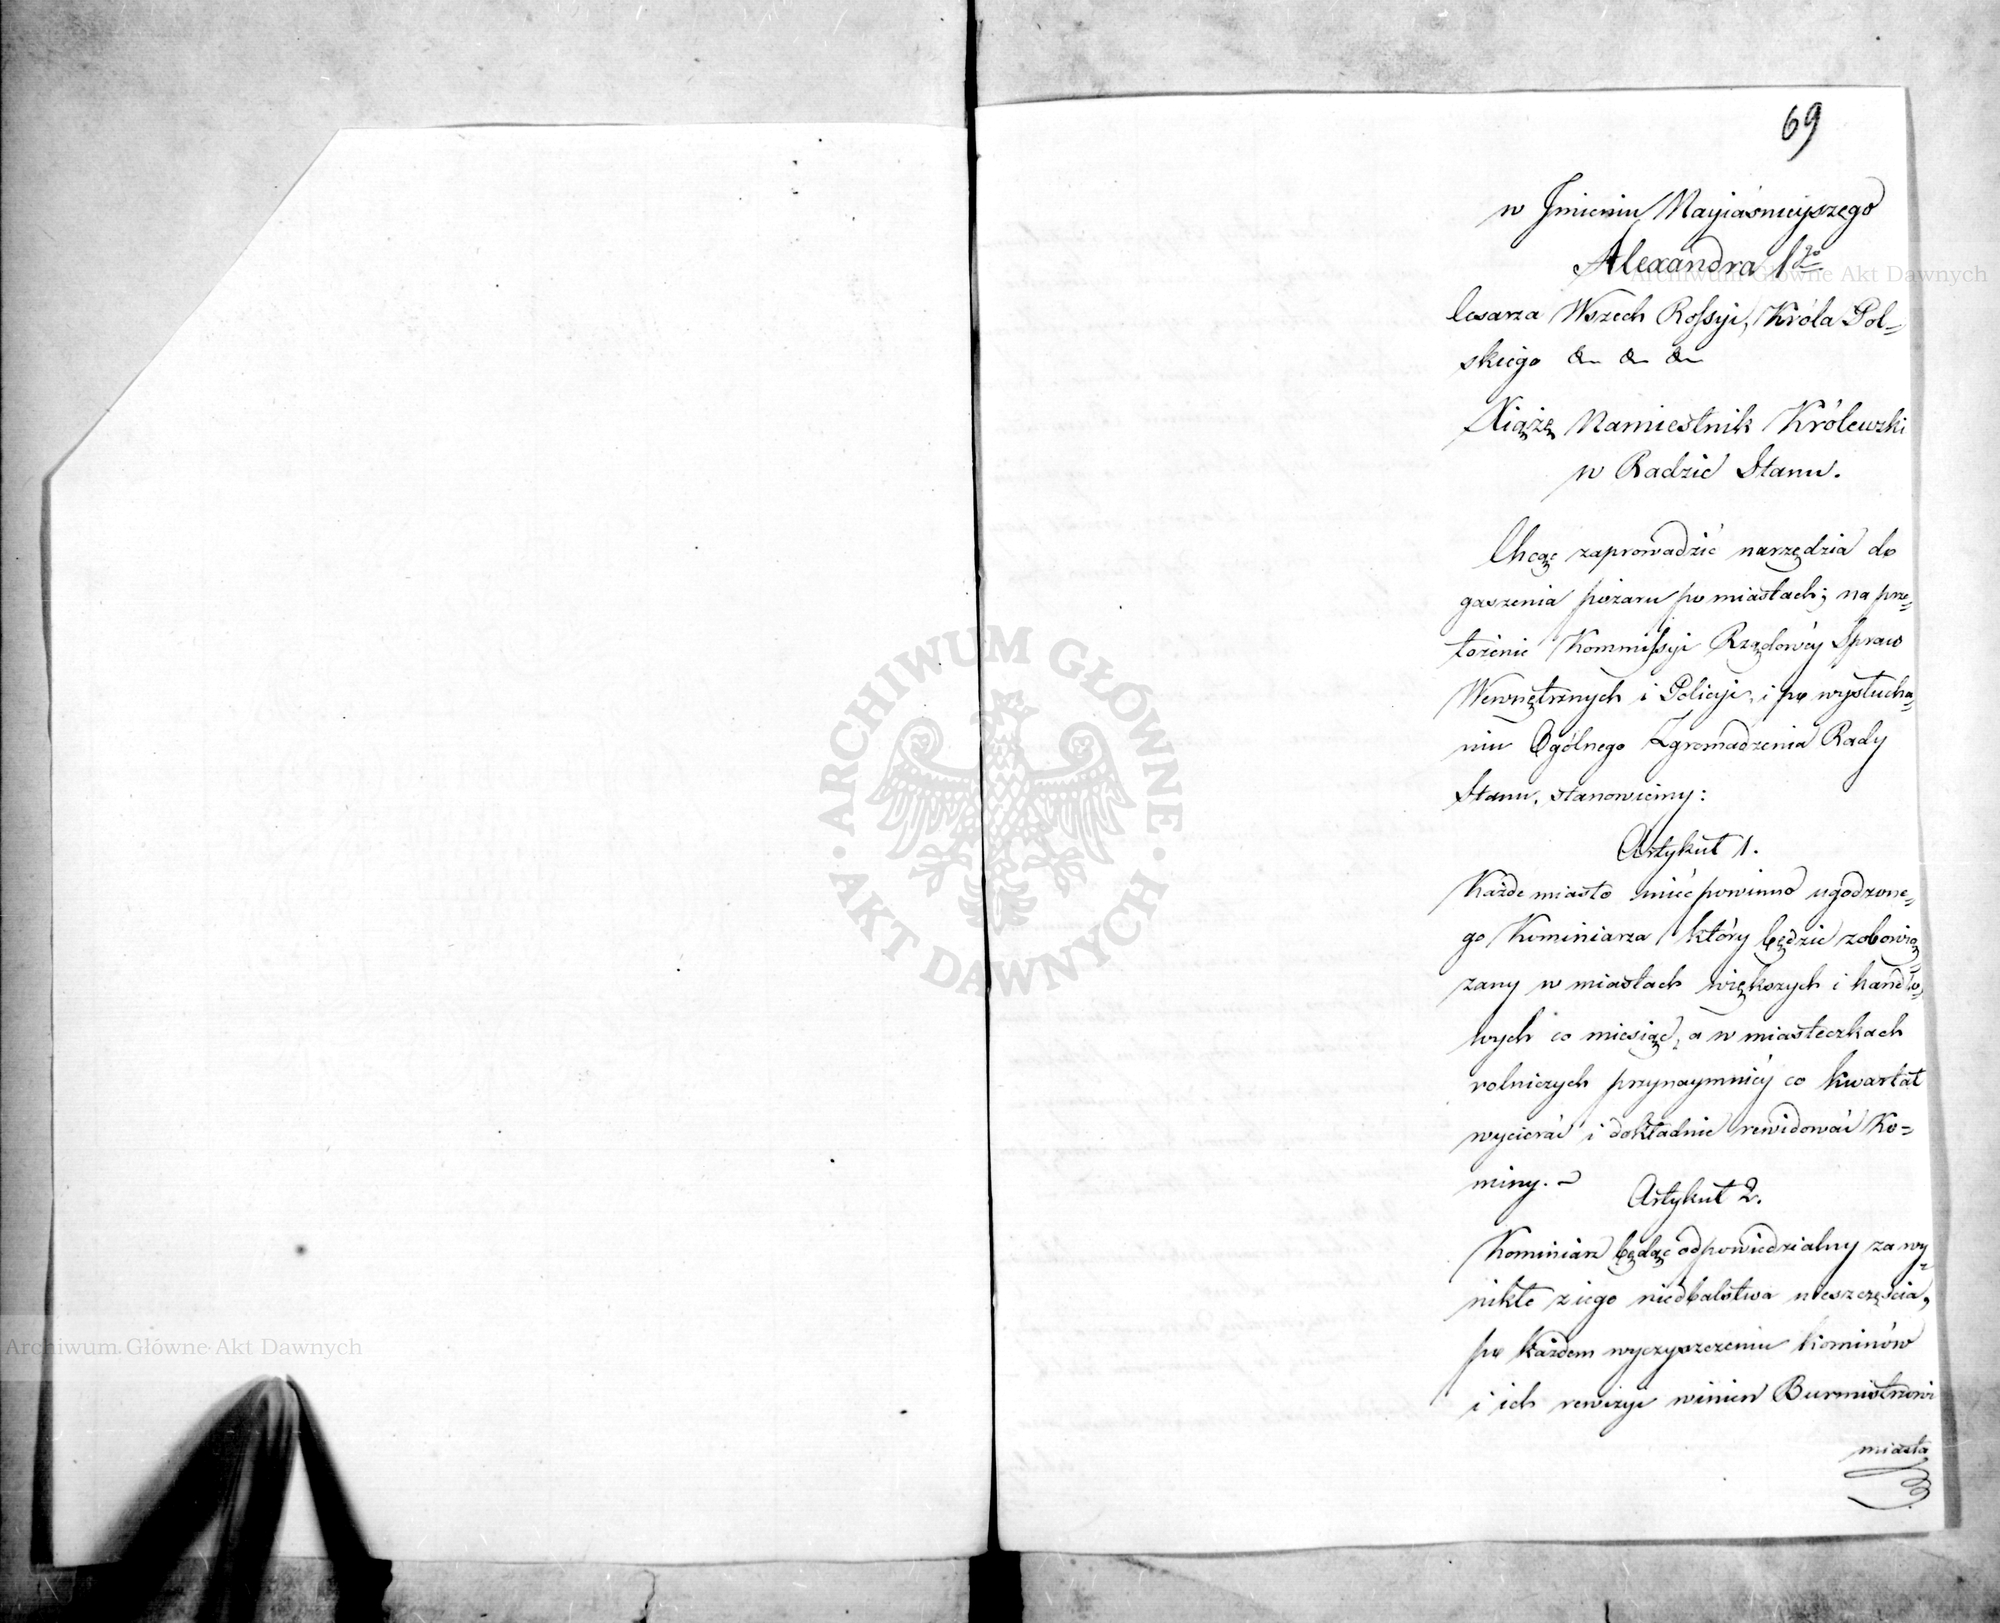 69
w Jmieniu Nayiaśnieyszego
Alexandra Igo
Cesarza Wszech Rossyi, Króla Pol=
skiego & & &
Xiążę Namiestnik Królewski
w Radzie Stanu.
Chcąc zaprowadzić narzędzia do
gaszenia pożaru po miastach; na prze=
łożenie Kommissyi Rządowéy Spraw
Wewnętrznych i Policyi, i po wysłucha=
niu Ogólnego Zgromadzenia Rady
Stanu, stanowiemy:
Artykuł 1.
Każde miasto mieć powinno ugodzone=
go Kominiarza który będzie zobowią=
zany w miastach większych i handlo=
wych co miesiąc, a w miasteczkach
rolniczych przynaymniéy co kwartał
wycierać i dokładnie rewidować Ko=
miny. ~
Artykuł 2.
Kominiarz będąc odpowiedzialny za wy=
nikłe z iego niedbalstwa nieszczęścia,
po każdem wyczyszczeniu kominów
i ich rewizyi winien Burmistrzowi
miasta
ARCHIWUM GŁÓWNE
· AKT DAWNYCH ·
Archiwum Główne Akt Dawnych
Archiwum Główne Akt Dawnych